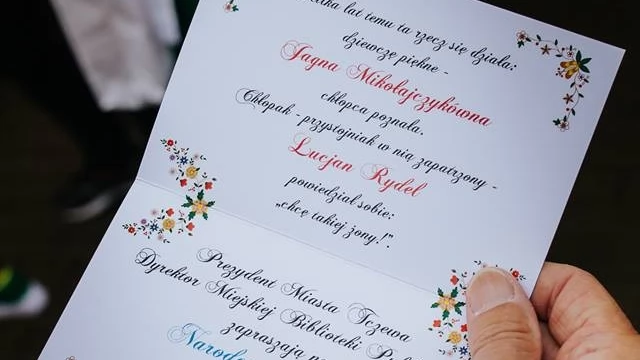 lat temu ta rzecz się działa:
dziewczę piękne -
Jagna Mikołajczykówna
chłopca poznała.
Chłopak - przystojniak w nią zapatrzony -
Lucjan Rydel
powiedział sobie:
„chcę takiej żony!".
Prezydent Miasta Tczewa
Dyrektor Miejskiej Biblioteki
zapraszają